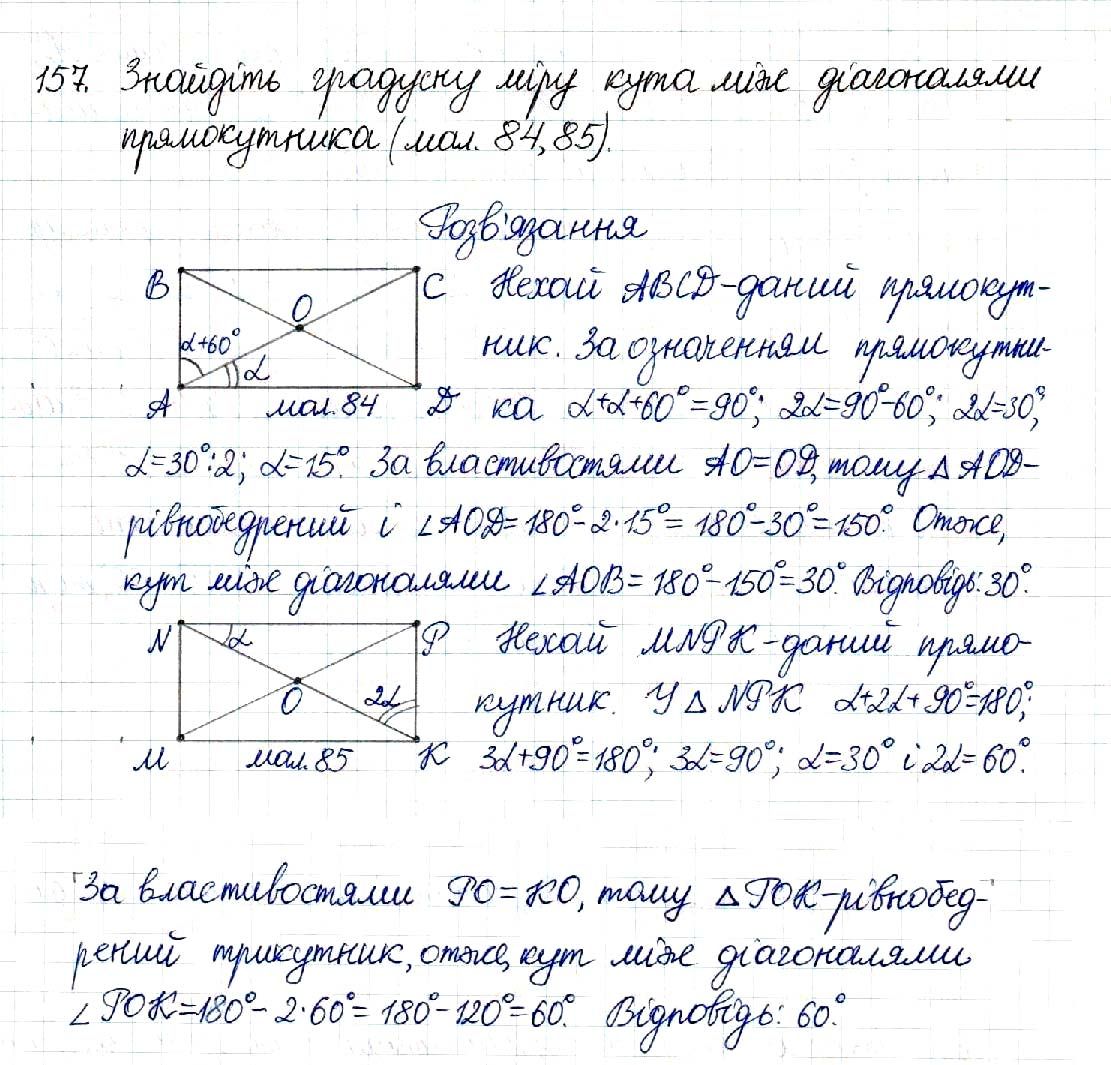 157. Знайдіть градусну міру кута між діагоналями
прямокутника (мал. 84, 85).
Розв'язання
B C Нехай ABCD-даний прямокут-
O
α+60° ник. За означенням прямокутни-
α
A мал. 84 D ка α+α+60°=90°; 2α=90°-60°; 2α=30°;
α=30°:2; α=15°. За властивостями AO=OD, тому △AOD-
рівнобедрений і ∠AOD=180°-2·15°=180°-30°=150°. Отже,
кут між діагоналями ∠AOB=180°-150°=30°. Відповідь: 30°.
N α P Нехай MNPK-даний прямо-
O 2α кутник. У △NPK α+2α+90°=180°;
M мал. 85 K 3α+90°=180°; 3α=90°; α=30° і 2α=60°.
За властивостями PO=KO, тому △POK-рівнобед-
рений трикутник, отже, кут між діагоналями
∠POK=180°-2·60°=180°-120°=60°. Відповідь: 60°.